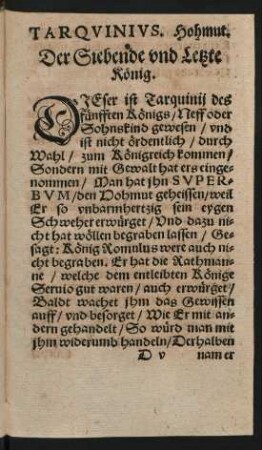 TARQVINIVS. Hohmut.
Der Siebende vnd Letzte
König.
DIEser ist Tarquinij des
fünfften Königs / Neff oder
Sohnskind gewesen / vnd
ist nicht ördentlich / durch
Wahl / zum Königreich kommen /
Sondern mit Gewalt hat ers einge-
nommen / Man hat jhn SVPER-
BVM / den Hohmut geheissen / weil
Er so vnbarmhertzig sein eygen
Schweher erwürget / Vnd dazu ni-
cht hat wöllen begraben lassen / Ge-
sagt: König Romulus were auch ni-
cht begraben. Er hat die Rathman-
ne / welche dem entleibten Könige
Seruio gut waren / auch erwürget /
Baldt wachet jhm das Gewissen
auff / vnd besorget / Wie Er mit an-
dern gehandelt / So würd man mit
jhm widerumb handeln / Derhalben
D v nam er